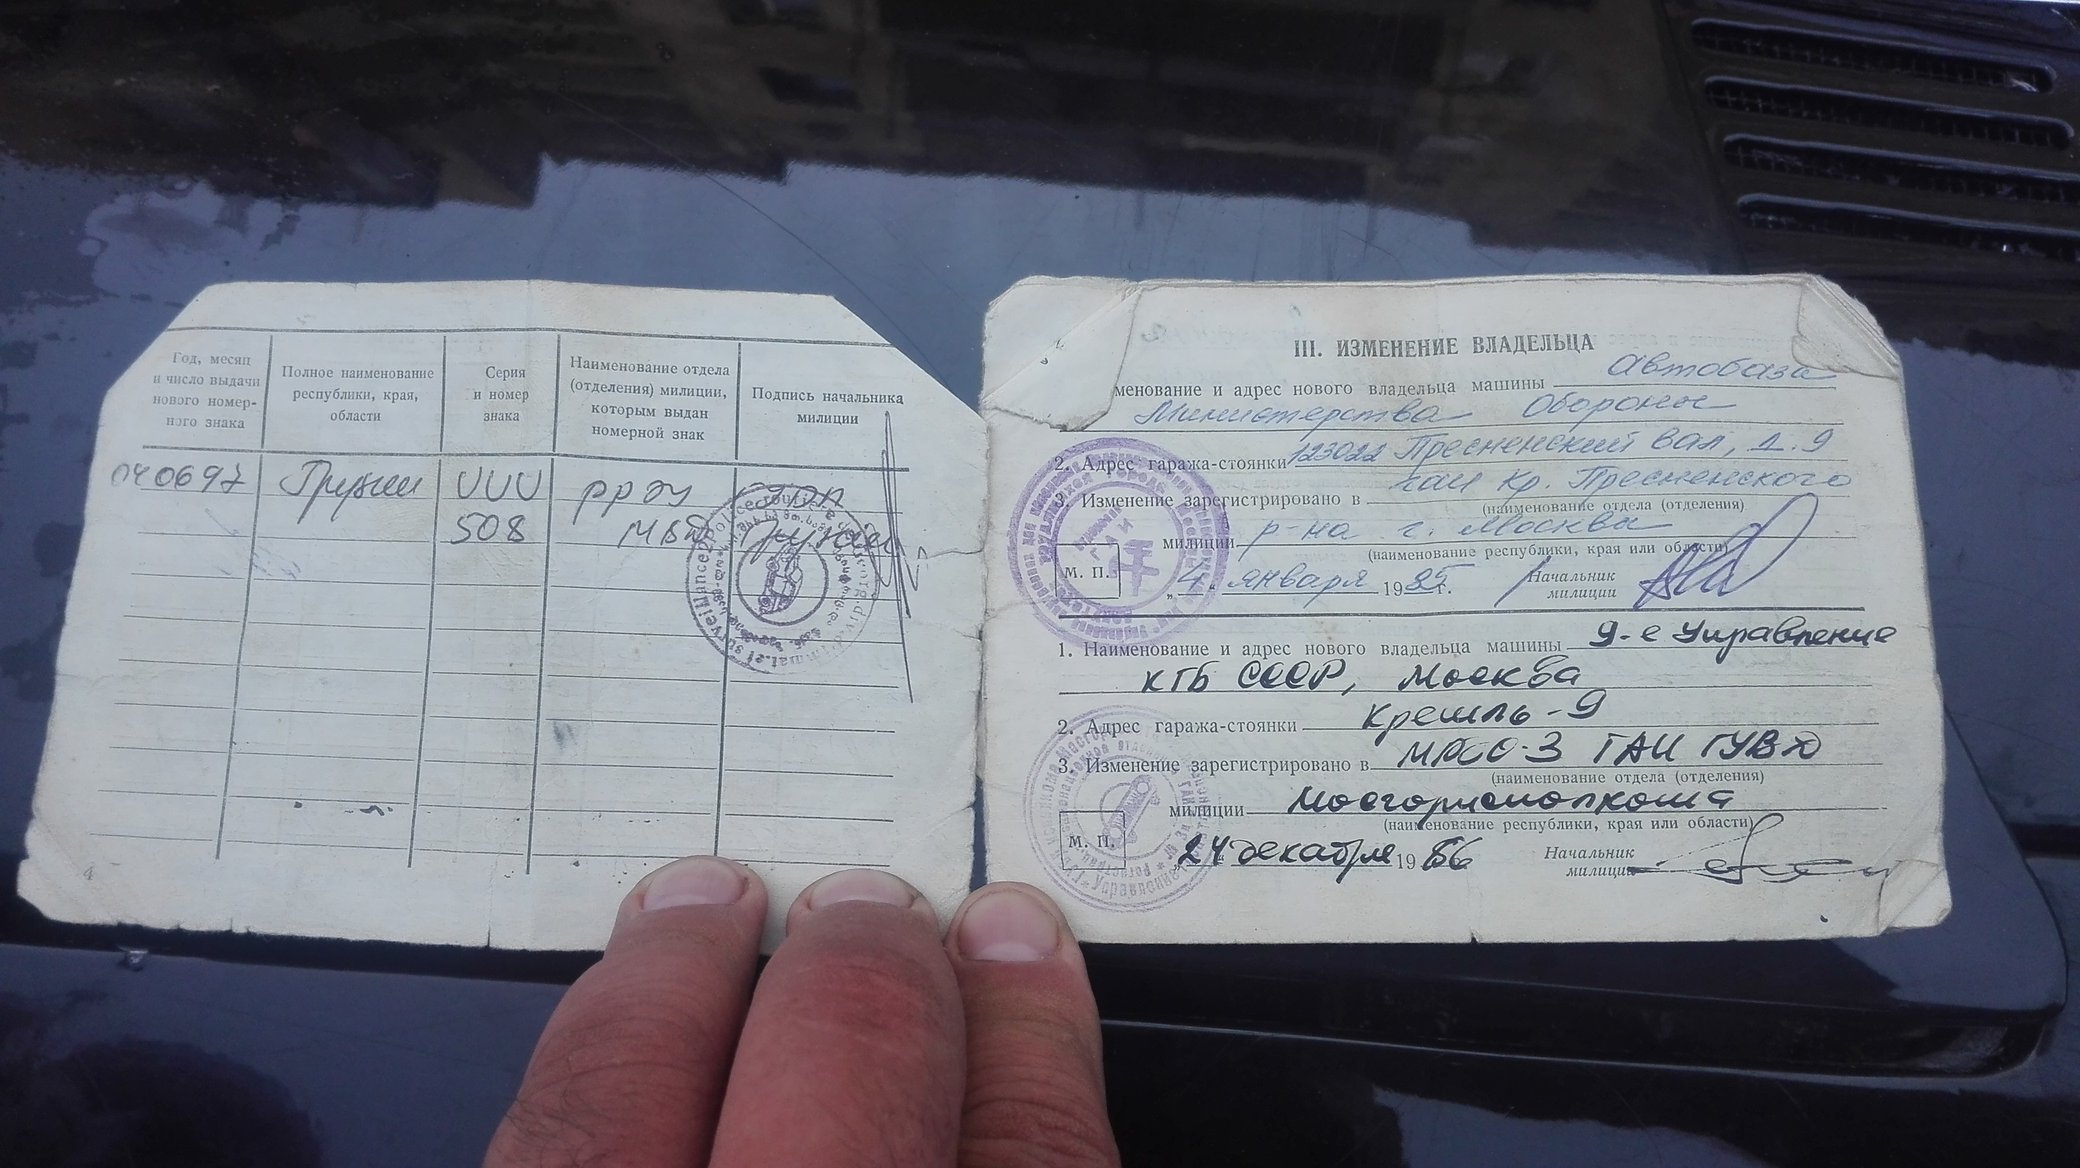 Год, месяц
и число выдачи
нового номер-
ного знака
Полное наименование
республики, края,
области
Серия
и номер
знака
Наименование отдела
(отделения) милиции,
которым выдан
номерной знак
Подпись начальника
милиции
040697 Грузии UUU
508
МВД Грузии
4
III. ИЗМЕНЕНИЕ ВЛАДЕЛЬЦА
менование и адрес нового владельца машины Автобаза
Министерства Обороны
2. Адрес гаража-стоянки 123022 Пресненский вал, д. 9
3. Изменение зарегистрировано в ГАИ Кр. Пресненского
(наименование отдела (отделения)
милиции р-на г. Москва
(наименование республики, края или области)
М. П.
„4" января 1985г. Начальник
милиции
1. Наименование и адрес нового владельца машины 9-е Управление
КГБ СССР, Москва
2. Адрес гаража-стоянки Кремль-9
3. Изменение зарегистрировано в МРЭО-3 ГАИ ГУВД
(наименование отдела (отделения)
милиции Мосгорисполкома
(наименование республики, края или области)
М. П.
24 декабря 1986 Начальник
милиции